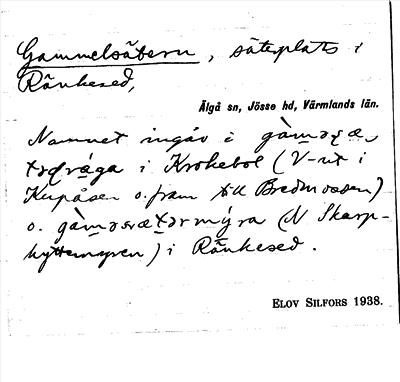 Gammelsätern, säterplats i
Ränkesed,
Älgå sn, Jösse hd, Värmlands län.
Namnet ingår i
i Krokebol (V-ut i
Kupåsen o. fram till Bredmossen)
o. (N Skarp-
hyttemyren) i Ränkesed.
ELOV SILFORS 1938.